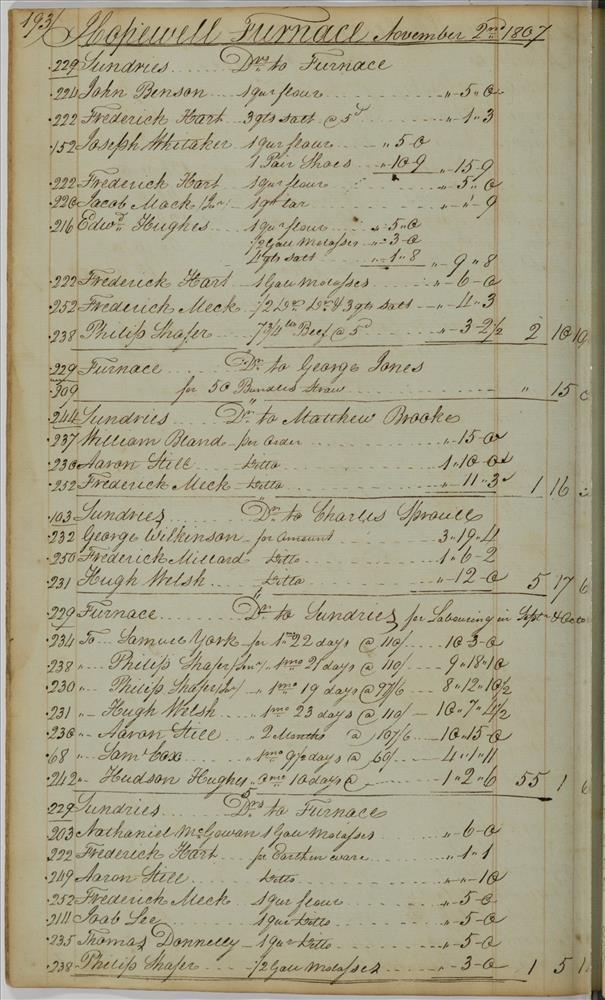 193/ Hopewell Furnace November 2nd 1807
229 Sundries Drs to Furnace
224 John Benson 1 qur flour " 5 " 0
222 Frederick Hart 3 qts salt @ 5d " 1 " 3
152 Joseph Whitaker 1 qur flour " 5 - 0
1 Pair Shoes " 10 - 9 " 15 - 9
222 Frederick Hart 1 qur flour " 5 " 0
220 Jacob Mack 1 qt tar " " - 9
216 Edwd Hughes 1 qur flour " 5 " 0
1/2 Gall Molasses " 3 - 0
4 qts salt " 1 " 8 " 9 " 8
222 Frederick Hart 1 Gall Molasses " 6 - 0
252 Frederick Meck 1/2 Do Do & 3 qts salt " 4 " 3
238 Philip Shafer 7 3/4 lbs Beef @ 5d " 3 - 2 1/2 2 10 10
229 Furnace Dr to George Jones
309 for 50 Bundles Straw " 15 0
244 Sundries Drs to Matthew Brooke
237 William Bland per Order " 15 - 0
230 Aaron Still Ditto 1 " 10 - 0
252 Frederick Meck Ditto " 11 " 3 1 16
103 Sundries Drs to Charles Sproull
232 George Wilkenson for amount 3 " 19 " 4
250 Frederick Millard Ditto 1 " 6 - 2
231 Hugh Welsh Ditto " 12 - 0 5 17 6
229 Furnace Dr to Sundries for Labouring in Sept & Octo
234 To Samuel York for 1 mo 22 days @ 110/ 10 " 3 - 0
238 " Philip Shafer (Senr) " 1 mo 21 days @ 110/ 9 " 18 " 10
230 " Philip Shafer (Jur) " 1 mo 19 days @ 97/6 8 " 12 " 10 1/2
231 " Hugh Welsh " 1 mo 23 days @ 110/ 10 " 7 " 4 1/2
230 " Aaron Still " 2 Months @ 107/6 10 " 15 - 0
68 " Saml Cox " 1 mo 9 1/2 days @ 60/ 4 " 1 " 11
242 " Hudson Hughes " 0 mo 10 days @ 1 " 2 " 6 55 1 6
229 Sundries Drs to Furnace
203 Nathaniel McGowan 1 Gall Molasses " 6 - 0
222 Frederick Hart for Earthen ware " 1 " 1
249 Aaron Still Ditto " " - 10
252 Frederick Meck 1 qur flour " 5 - 0
214 Joab Lee 1 qur Ditto " 5 - 0
235 Thomas Donnelly 1 qur Ditto " 5 - 0
238 Philip Shafer 1/2 Gall Molasses " 3 - 0 1 5 1